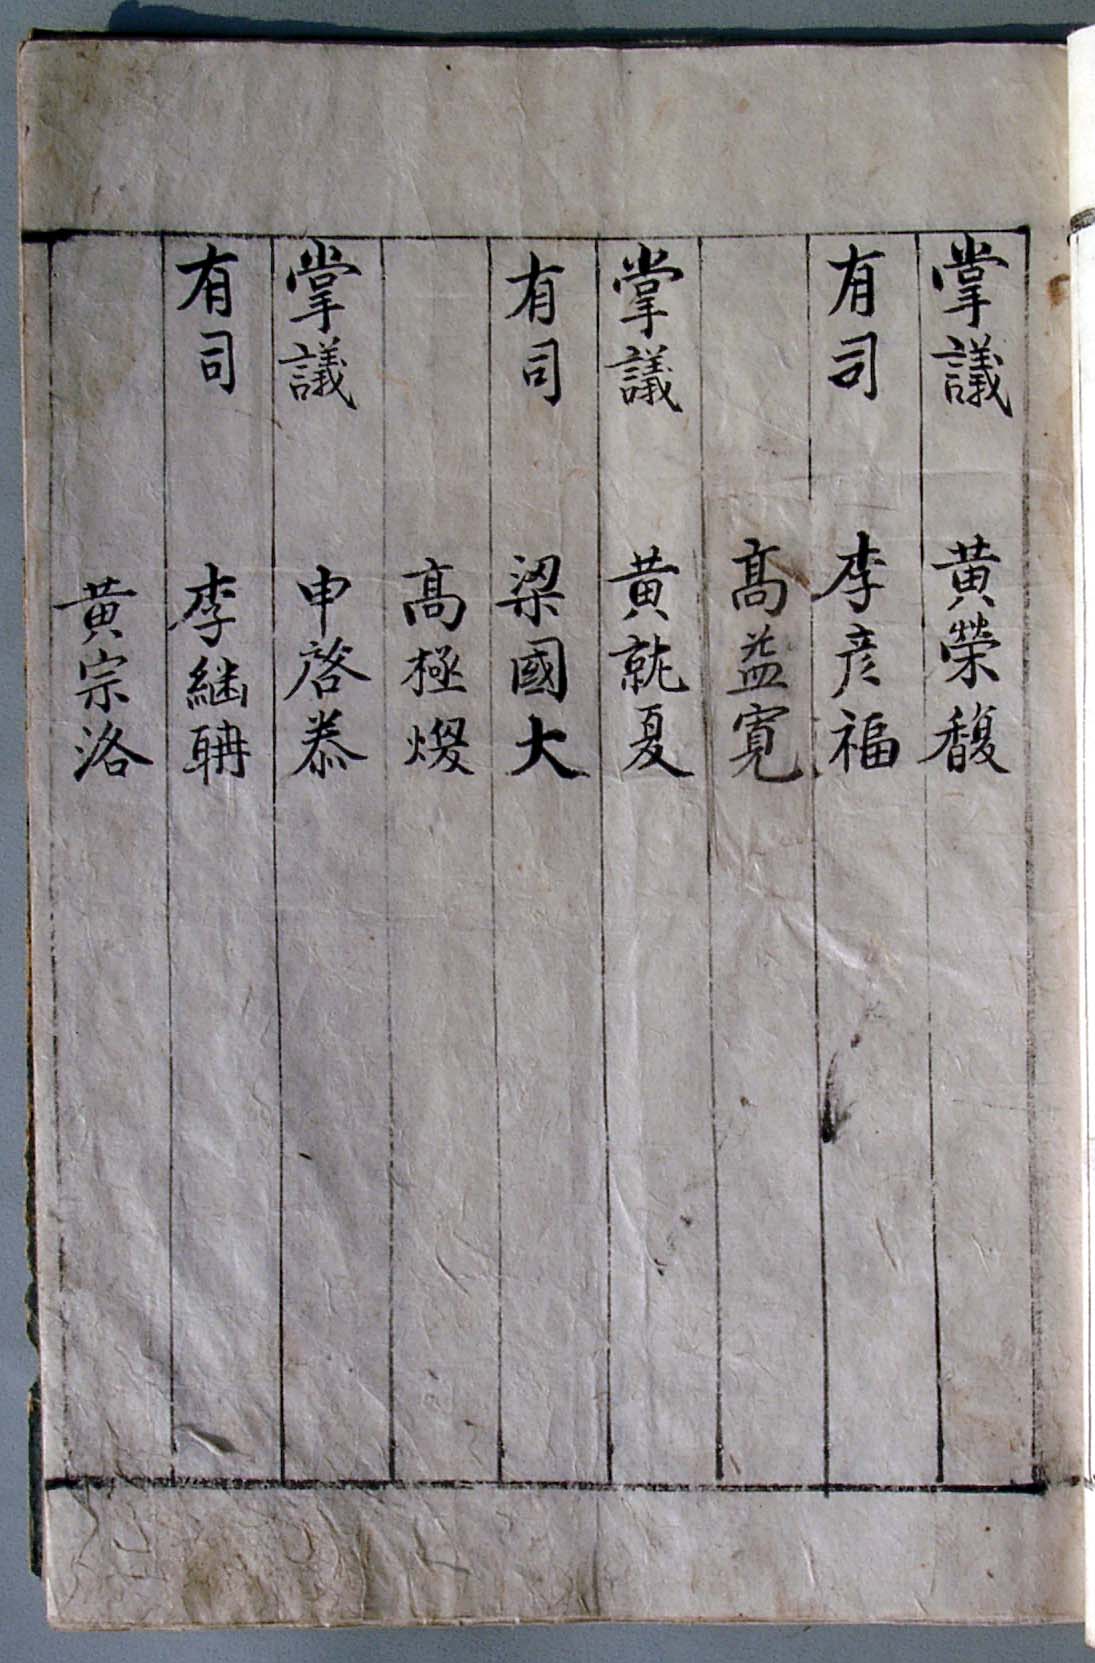 掌議 黃榮馥
有司 李彦福
高益寛
掌議 黃就夏
有司 梁國大
高極煖
掌議 申啓恭
有司 李継聃
黃宗洛